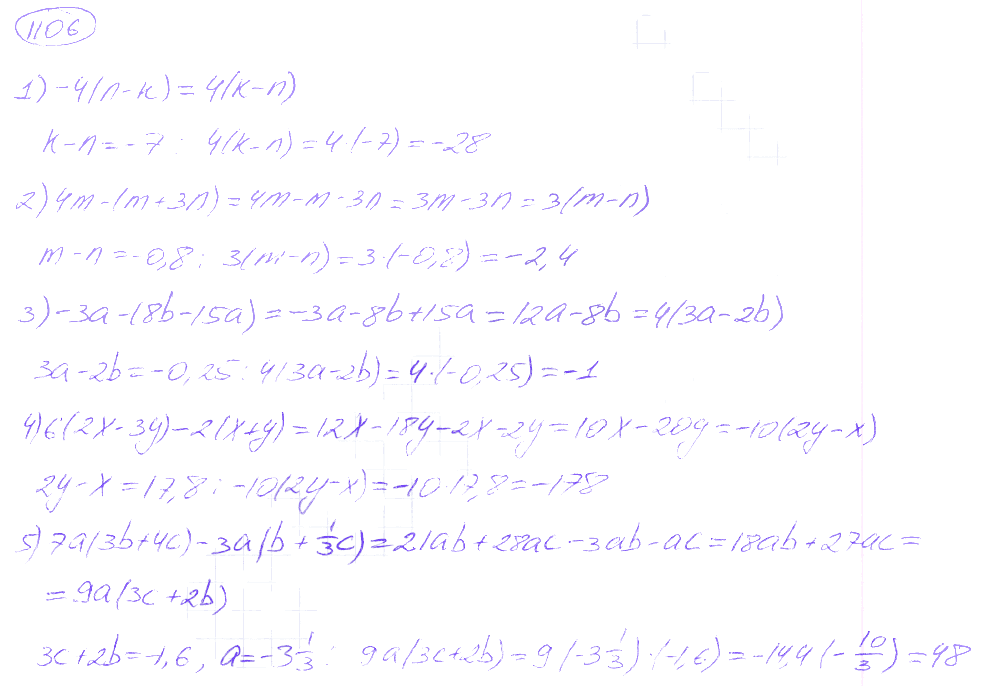 1106
1) -4(n-k) = 4(k-n)
k-n=-7: 4(k-n)=4·(-7)=-28
2) 4m-(m+3n)=4m-m-3n=3m-3n=3(m-n)
m-n=-0,8: 3(m-n)=3·(-0,8)=-2,4
3) -3a-(8b-15a)=-3a-8b+15a=12a-8b=4(3a-2b)
3a-2b=-0,25: 4(3a-2b)=4·(-0,25)=-1
4) 6(2x-3y)-2(x+y)=12x-18y-2x-2y=10x-20y=-10(2y-x)
2y-x=17,8: -10(2y-x)=-10·17,8=-178
5) 7a(3b+4c)-3a(b+1/3c)=21ab+28ac-3ab-ac=18ab+27ac=
=9a(3c+2b)
3c+2b=-1,6, a=-3 1/3: 9a(3c+2b)=9(-3 1/3)·(-1,6)=-14,4(-10/3)=48